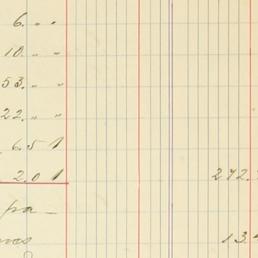 6. " "
10. " "
53. " "
22. " "
6.51
2.01 272.
pa-
13.